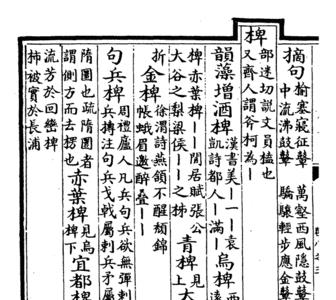 摘句 榆塞寬征鼙 萬壑西風隱鼓鼙
中流沸鼓鼙 驕驤輕步應金鼙
椑 部迷切說文員榼也
又齊人謂斧柯為—
韻藻 增 酒椑 漢書美——哀
凱詩都人—滿— 烏椑
椑赤葉椑——閒居賦張公
大谷之梨梁侯——之柿 青椑 見上
金椑 徐渭詩燕領不醒頳錦
折 帳蛾眉邀醉疊——
句兵椑 周禮廬人凡兵句兵欲無彈刺
兵摶注句兵戈戟屬刺兵矛屬
隋圓也疏隋圓者
謂側方而去楞也 赤葉椑 見烏
椑下 宜都椑
流芳於回巒椑
柿被實於長浦